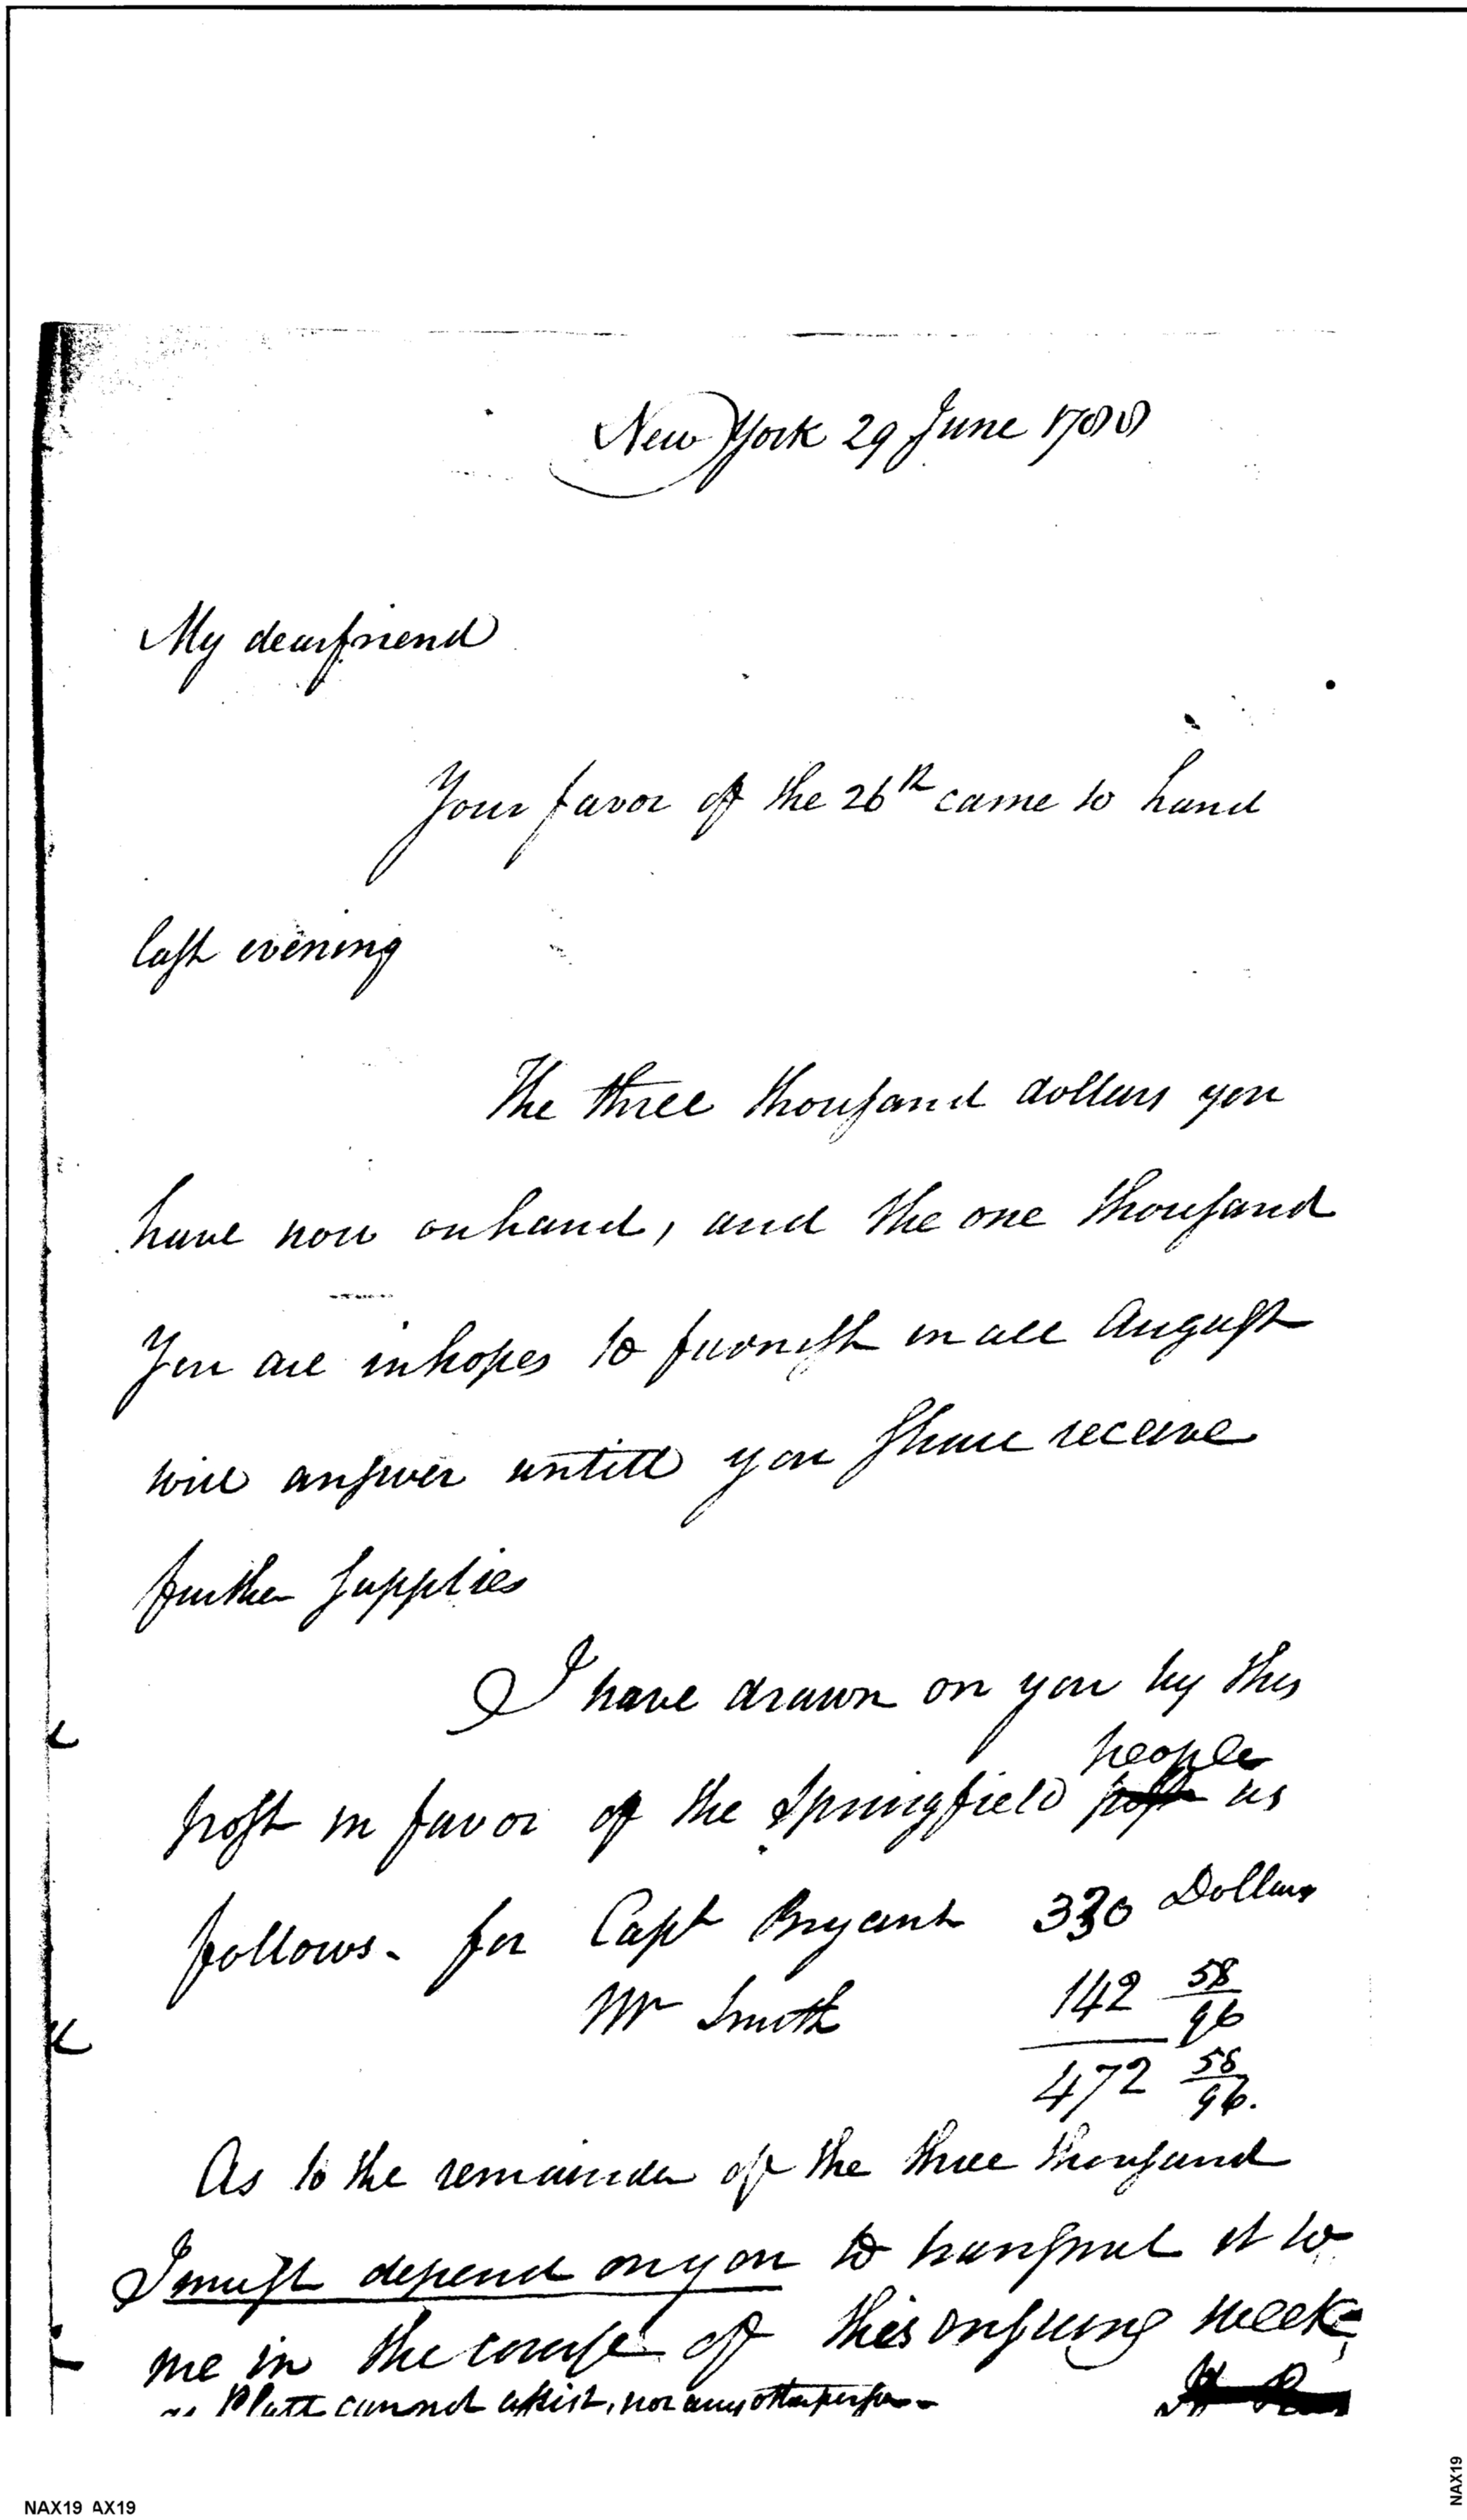 New York 29 June 1788
My dear friend
Your favor of the 26th came to hand
last evening
The three thousand dollars you
have now on hand, and the one thousand
You are in hopes to furnish in all August
will answer untill you shall receive
further supplies
I have drawn on you by this
people
post in favor of the Springfield post as
follows - for Capt Bryant 330 Dollars
Mr Smith 142 58/96
472 58/96.
As to the remainder of the three thousand
I must depend on you to transmit it to
me in the course of this ensuing week
as Platt cannot assist, nor any other person -
NAX19 AX19
NAX19